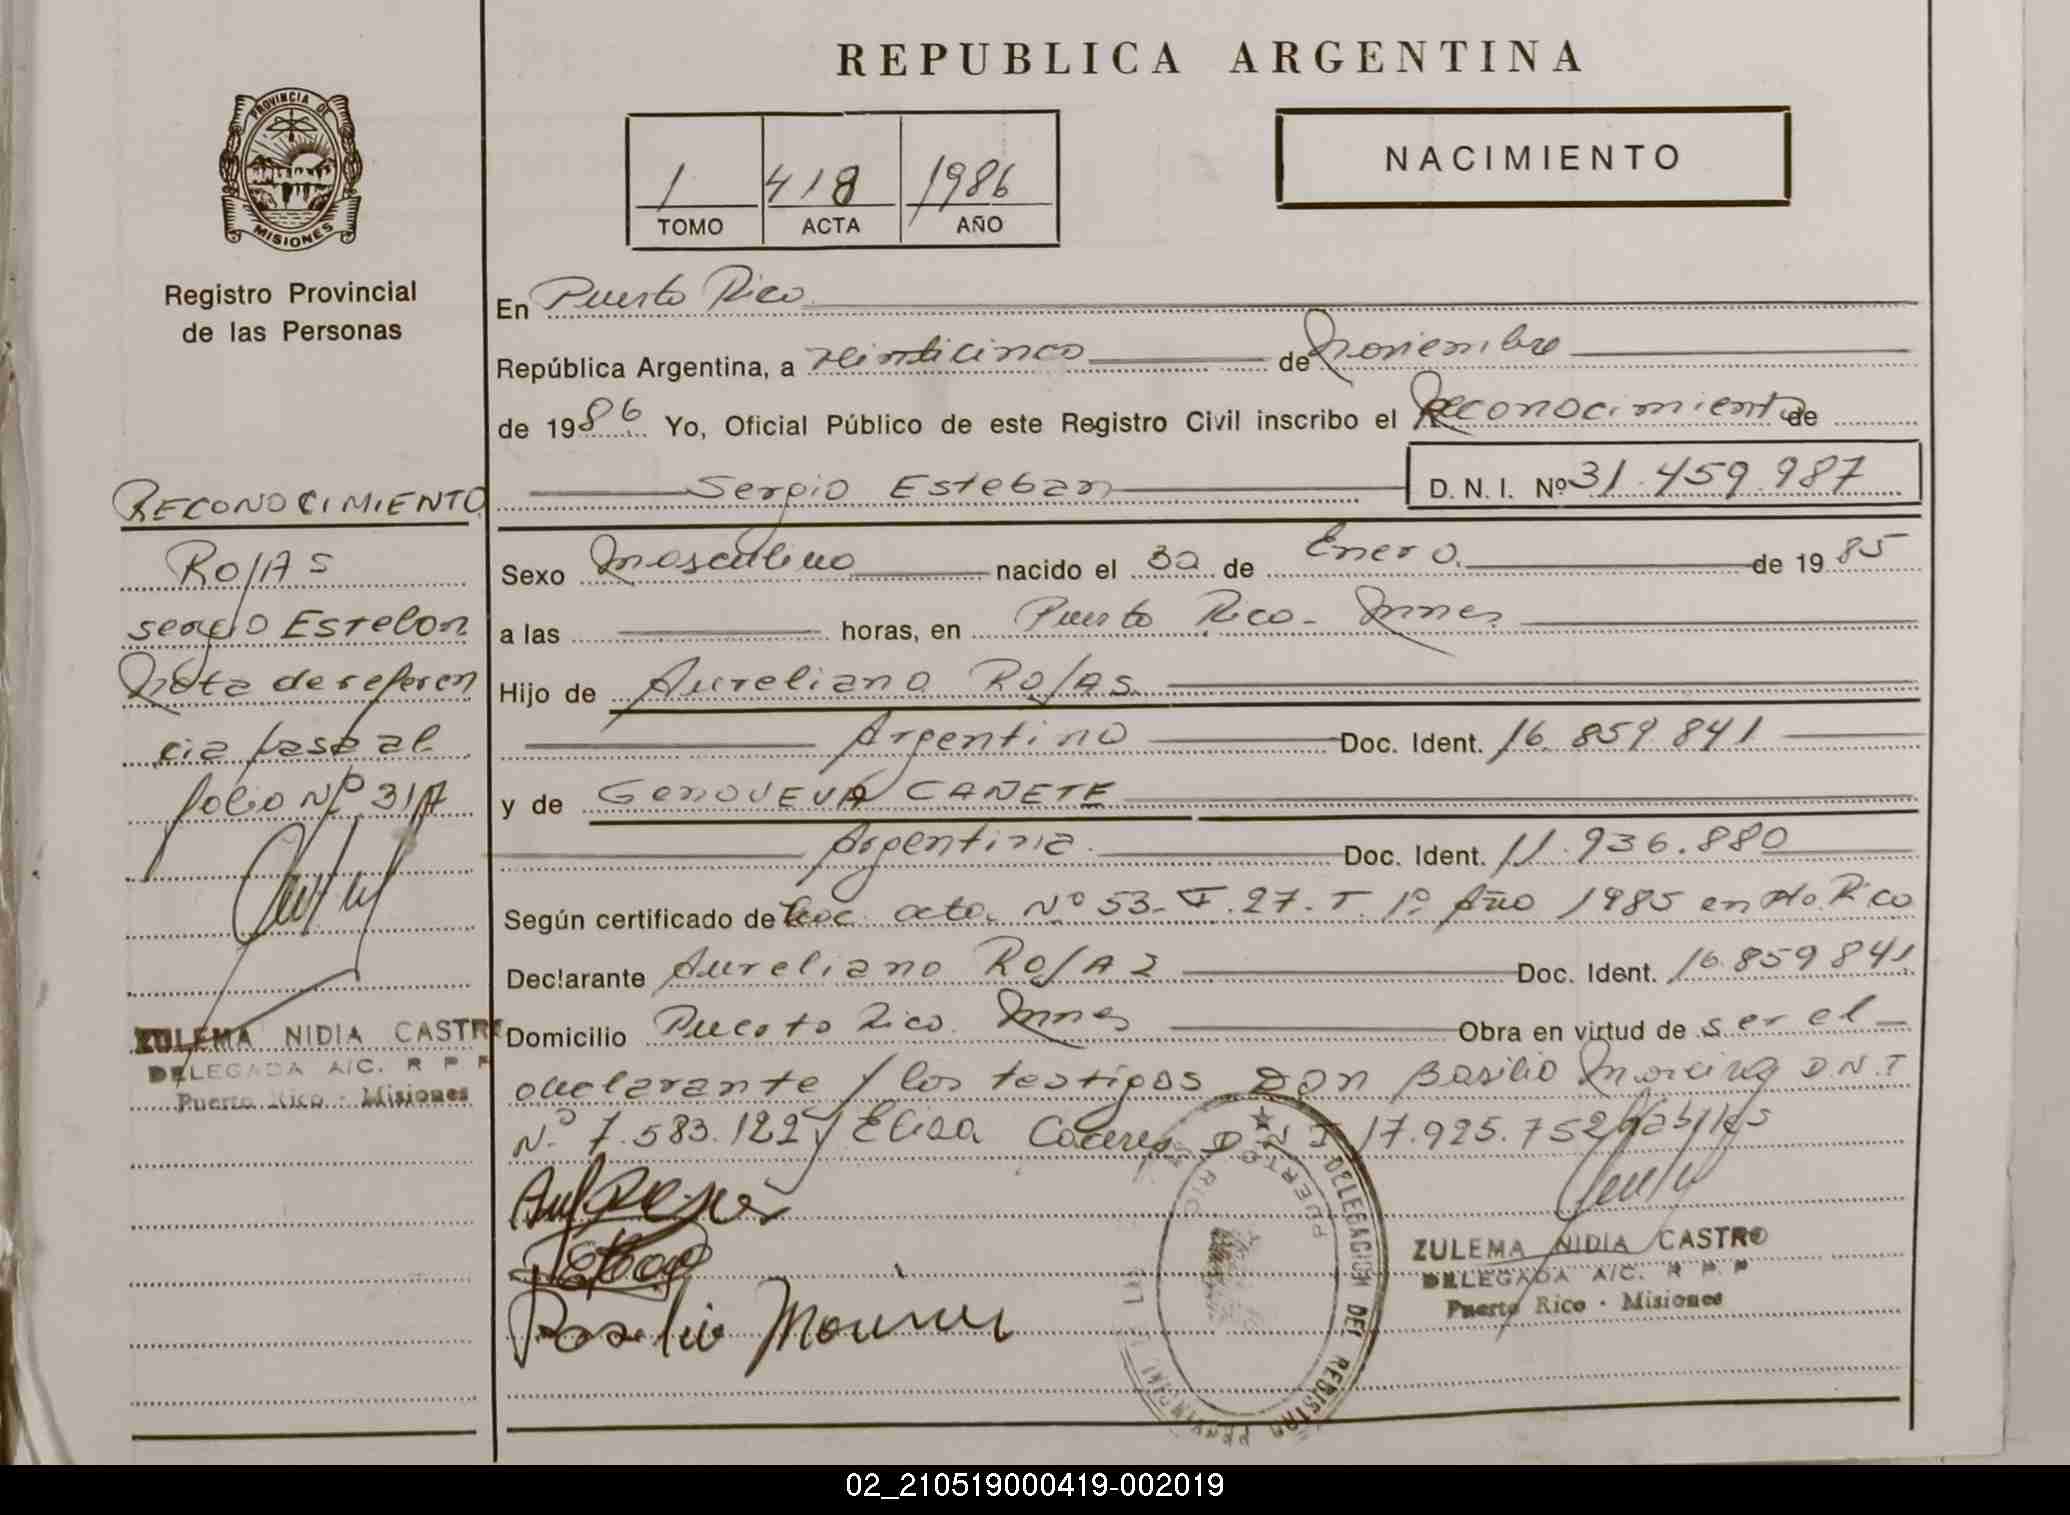 REPUBLICA ARGENTINA
PROVINCIA DE
MISIONES
Registro Provincial
de las Personas
1 418 1986
TOMO ACTA AÑO
NACIMIENTO
En Puerto Rico
República Argentina, a Veinticinco de Noviembre
de 1986 Yo, Oficial Público de este Registro Civil inscribo el Reconocimiento de
Sergio Esteban D. N. I. Nº 31.459.987
Sexo Masculino nacido el 30 de Enero de 1985
a las horas, en Puerto Rico - Mnes
Hijo de Aureliano Rojas
Argentino Doc. Ident. 16.859.841
y de Genoveva CAÑETE
Argentina Doc. Ident. 11.936.880
Según certificado de acta Nº 53. F. 27. T. 1º Año 1985 en Pto. Rico
Declarante Aureliano Rojas Doc. Ident. 16.859.841
Domicilio Puerto Rico Mnes Obra en virtud de ser el
declarante y los testigos Don Basilio D.N.I
Nº 7.583.122 y Elisa Caceres D.N.I 17.925.752 habiles
RECONOCIMIENTO
ROJAS
sergio Esteban
Nota de referen
cia pase al
folio Nº 317
ZULEMA NIDIA CASTR
DELEGADA A/C. R P P
Puerto Rico - Misiones
PUERTO RICO
DELEGACION DEL REGISTRO PROVINCIAL DE LAS
ZULEMA NIDIA CASTRO
DELEGADA A/C. R P P
Puerto Rico - Misiones
02_210519000419-002019